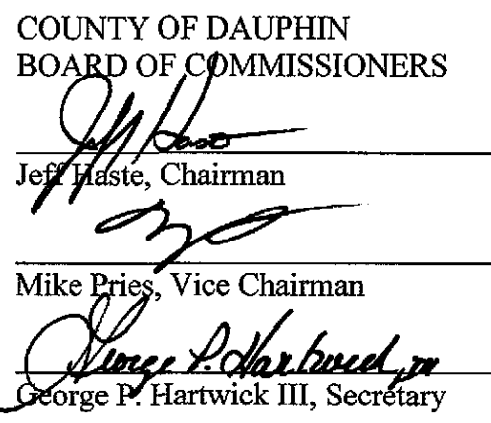 COUNTY OF DAUPHIN
BOARD OF COMMISSIONERS
Jeff Haste
Jeff Haste, Chairman
Mike Pries, Vice Chairman
George P. Hartwick, III
George P. Hartwick III, Secretary